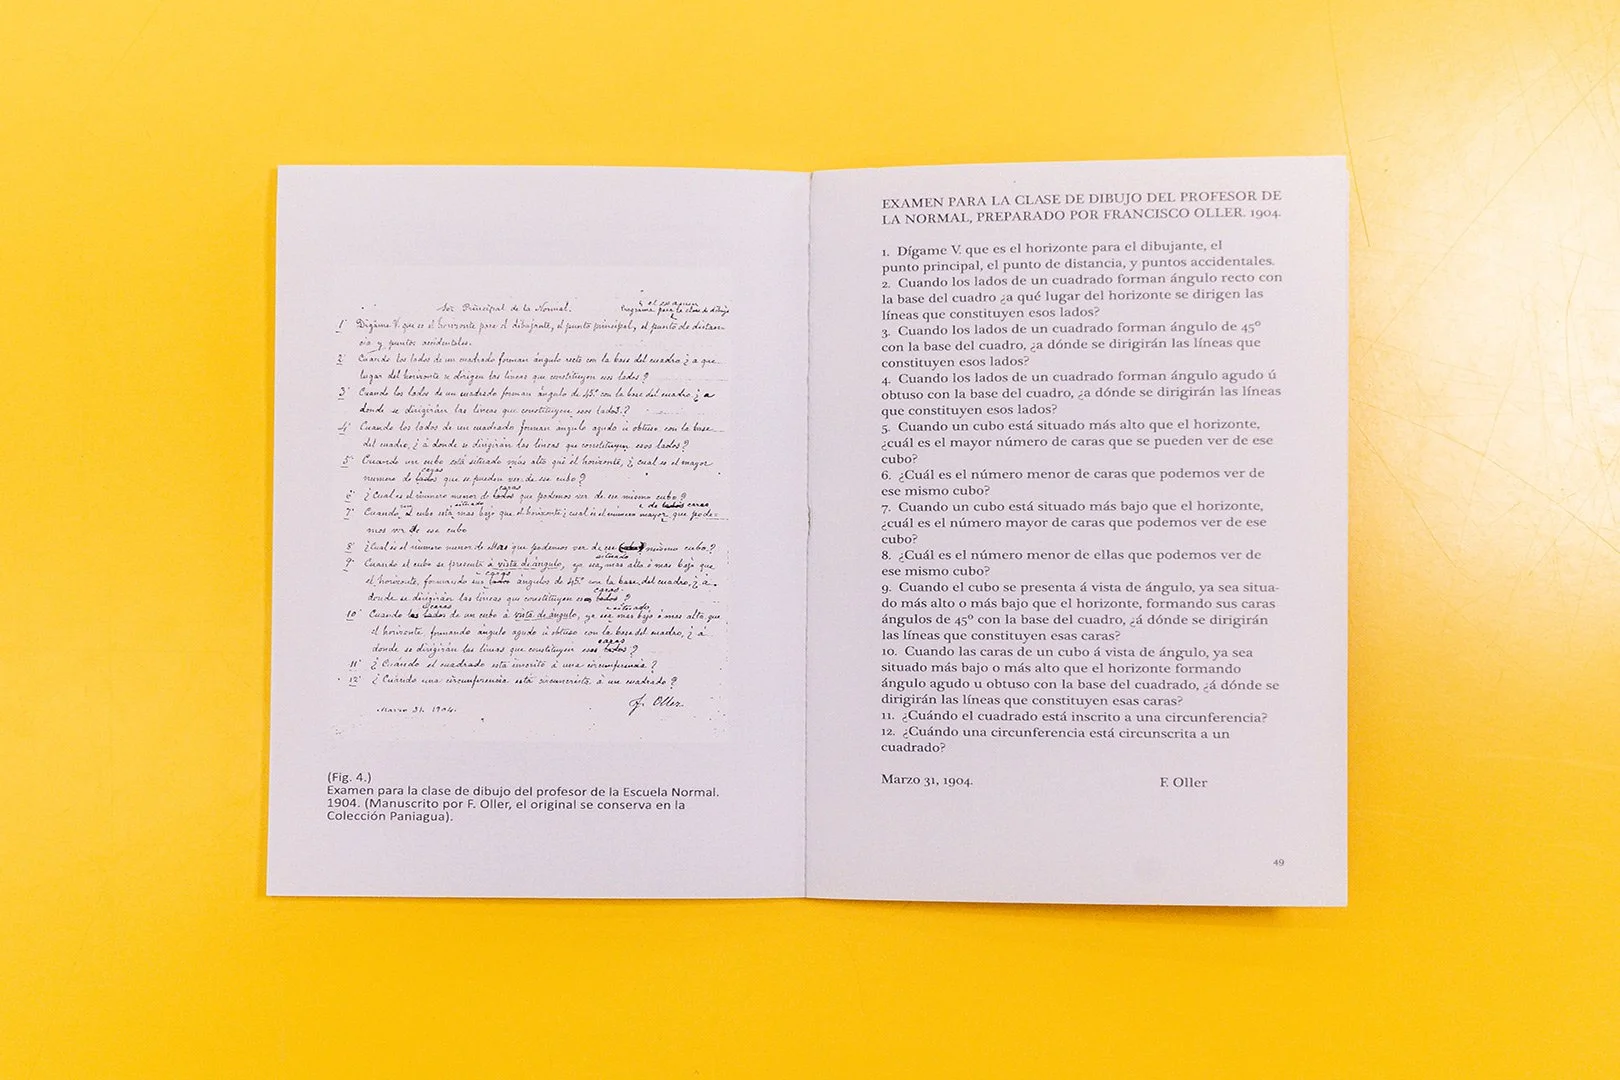 Sor Principal de la Normal.
y el es a quien
Programa para la clase de dibujo
1° Dígame V. que es el horizonte para el dibujante, el punto principal, el punto de distan-
cia y puntos accidentales.
2° Cuando los lados de un cuadrado forman ángulo recto con la base del cuadro ¿ a que
lugar del horizonte se dirigen las lineas que constituyen esos lados?
3° Cuando los lados de un cuadrado forman ángulo de 45.° con la base del cuadro ¿ a
donde se dirigirán las lineas que constituyen esos lados?
4° Cuando los lados de un cuadrado forman angulo agudo ú obtuso con la base
del cuadro, ¿ á donde se dirigirán las lineas que constituyen esos lados?
5° Cuando un cubo está situado más alto que el horizonte, ¿ cual es el mayor
caras
numero de lados que se pueden ver de ese cubo?
caras
6° ¿Cual es el numero menor de lados que podemos ver de ese mismo cubo?
situado
e de lados caras
7° Cuando el cubo está mas bajo que el horizonte ¿cual es el número mayor que pode-
mos ver de ese cubo
8° ¿Cual es el numero menor de ellas que podemos ver de ese mismo cubo?
situado
9° Cuando el cubo se presenta á vista de ángulo, ya sea mas alto ó mas bajo que
caras
el horizonte, formando sus lados ángulos de 45.° con la base del cuadro, ¿ á
caras
donde se dirigirán las lineas que constituyen esos lados?
caras
situado
10° Cuando los lados de un cubo á vista de ángulo, ya sea mas bajo ó mas alto que
el horizonte formando ángulo agudo ú obtuso con la base del cuadro, ¿ á
caras
donde se dirigirán las lineas que constituyen esos lados?
11° ¿ Cuándo el cuadrado está inscrito á una circunferencia?
12° ¿ Cuándo una circunferencia está circunscrita á un cuadrado?
Marzo 31, 1904.
F. Oller
(Fig. 4.)
Examen para la clase de dibujo del profesor de la Escuela Normal.
1904. (Manuscrito por F. Oller, el original se conserva en la
Colección Paniagua).
EXAMEN PARA LA CLASE DE DIBUJO DEL PROFESOR DE
LA NORMAL, PREPARADO POR FRANCISCO OLLER. 1904.
1. Dígame V. que es el horizonte para el dibujante, el
punto principal, el punto de distancia, y puntos accidentales.
2. Cuando los lados de un cuadrado forman ángulo recto con
la base del cuadro ¿a qué lugar del horizonte se dirigen las
líneas que constituyen esos lados?
3. Cuando los lados de un cuadrado forman ángulo de 45º
con la base del cuadro, ¿a dónde se dirigirán las líneas que
constituyen esos lados?
4. Cuando los lados de un cuadrado forman ángulo agudo ú
obtuso con la base del cuadro, ¿a dónde se dirigirán las líneas
que constituyen esos lados?
5. Cuando un cubo está situado más alto que el horizonte,
¿cuál es el mayor número de caras que se pueden ver de ese
cubo?
6. ¿Cuál es el número menor de caras que podemos ver de
ese mismo cubo?
7. Cuando un cubo está situado más bajo que el horizonte,
¿cuál es el número mayor de caras que podemos ver de ese
cubo?
8. ¿Cuál es el número menor de ellas que podemos ver de
ese mismo cubo?
9. Cuando el cubo se presenta á vista de ángulo, ya sea situa-
do más alto o más bajo que el horizonte, formando sus caras
ángulos de 45º con la base del cuadro, ¿á dónde se dirigirán
las líneas que constituyen esas caras?
10. Cuando las caras de un cubo á vista de ángulo, ya sea
situado más bajo o más alto que el horizonte formando
ángulo agudo u obtuso con la base del cuadrado, ¿á dónde se
dirigirán las líneas que constituyen esas caras?
11. ¿Cuándo el cuadrado está inscrito a una circunferencia?
12. ¿Cuándo una circunferencia está circunscrita a un
cuadrado?
Marzo 31, 1904.
F. Oller
49